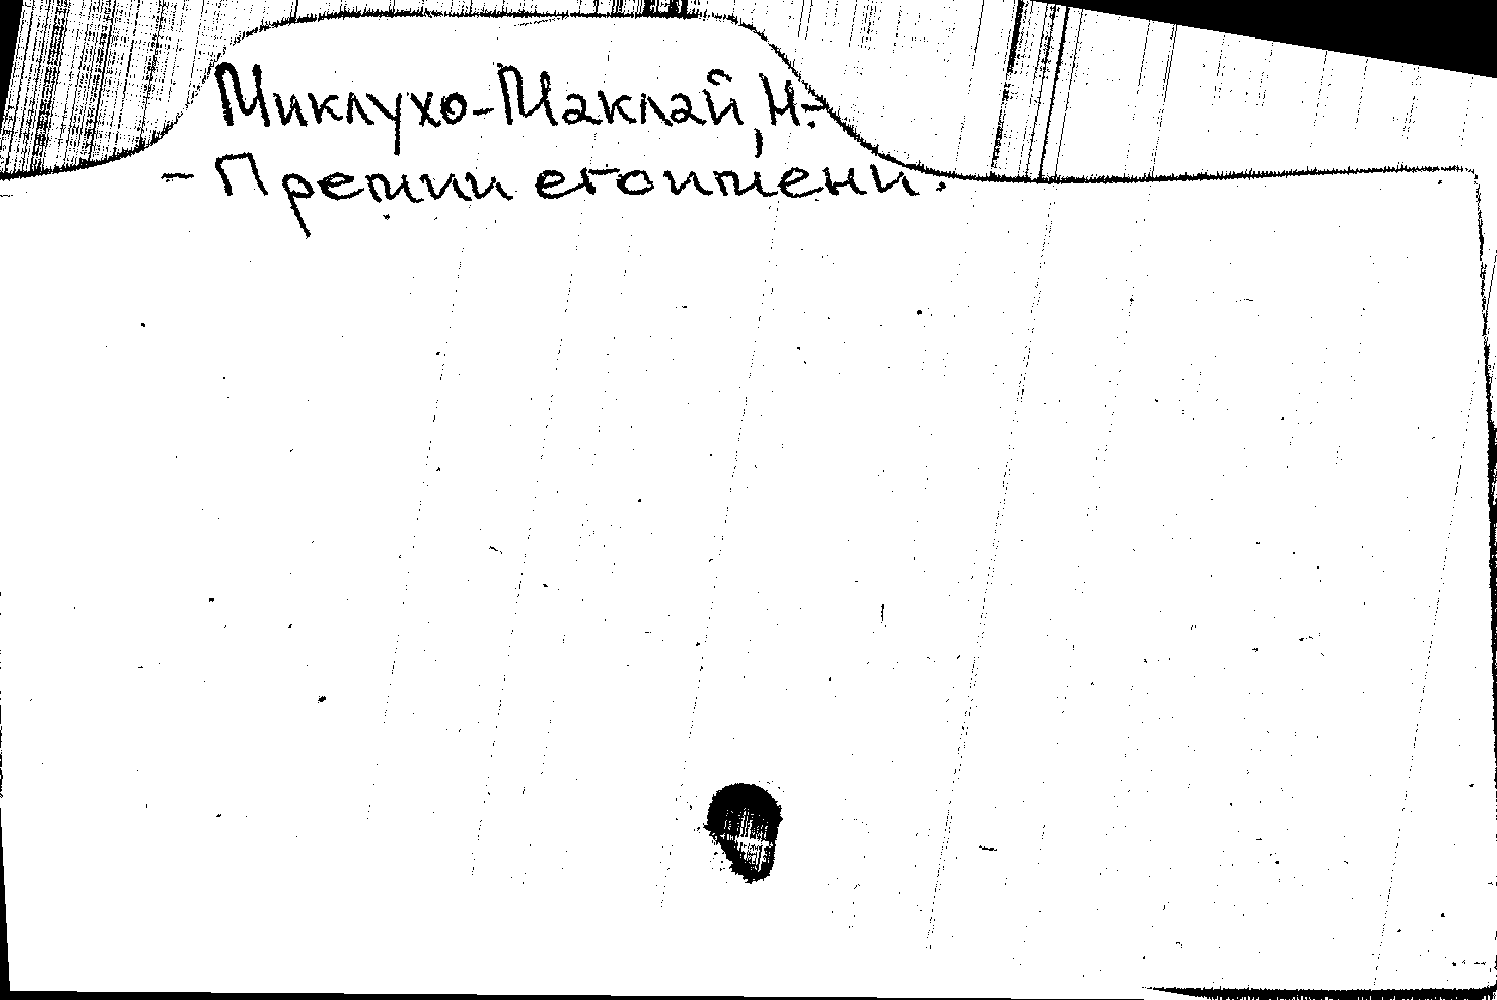 Миклухо-Маклай, Н.-
- Премии его имени.